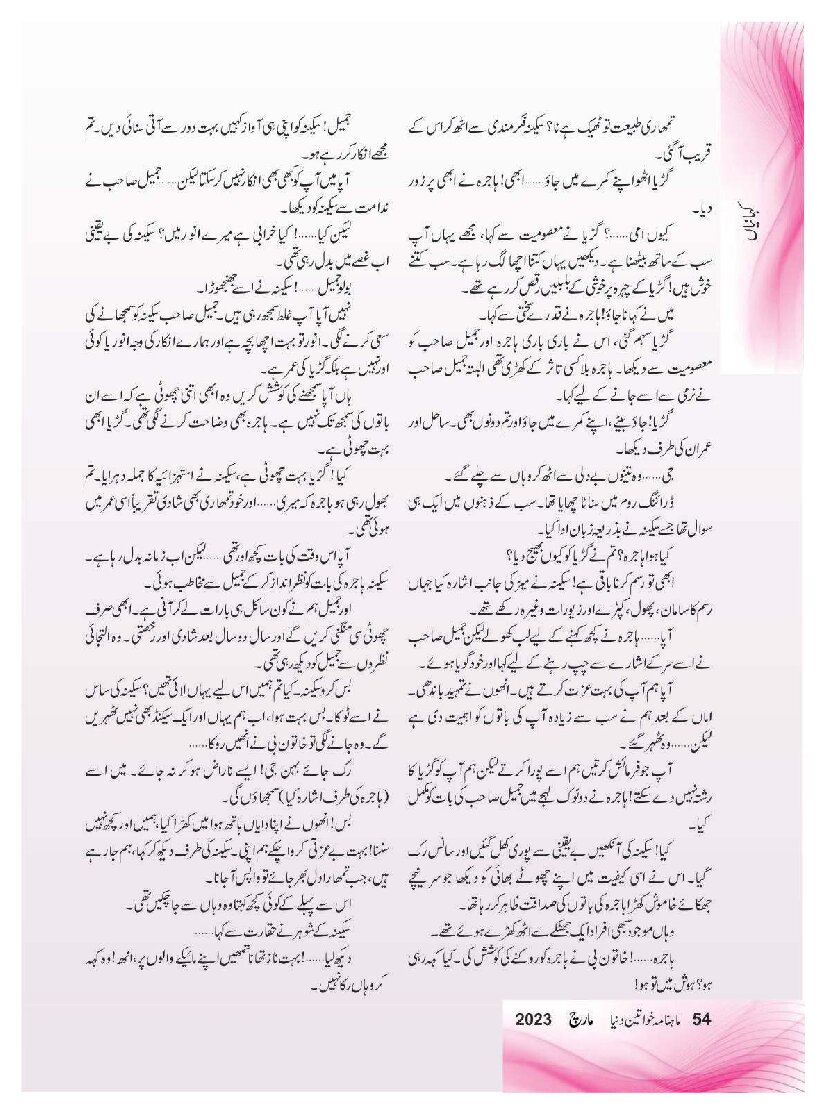 کہانیاں
تمھاری طبیعت تو ٹھیک ہے نا؟ سکینہ فکرمندی سے اٹھ کر اس کے
قریب آ گئی۔
گڑیا اٹھو اپنے کمرے میں جاؤ......ابھی! ہاجرہ نے ابھی پر زور
دیا۔
کیوں امی.....؟ گڑیا نے معصومیت سے کہا، مجھے یہاں آپ
سب کے ساتھ بیٹھنا ہے۔ دیکھیں یہاں کتنا اچھا لگ رہا ہے۔ سب کتنے
خوش ہیں! گڑیا کے چہرہ پر خوشی کے بلبلیں رقص کر رہے تھے۔
میں نے کہا نا جاؤ! ہاجرہ نے قدرے سختی سے کہا۔
گڑیا سہم گئی، اس نے باری باری ہاجرہ اور جمیل صاحب کو
معصومیت سے دیکھا۔ ہاجرہ بلا کسی تاثر کے کھڑی تھی البتہ جمیل صاحب
نے نرمی سے اسے جانے کے لیے کہا۔
گڑیا! جاؤ بیٹے، اپنے کمرے میں جاؤ اور تم دونوں بھی۔ ساحل اور
عمران کی طرف دیکھا۔
جی......وہ تینوں بے دلی سے اٹھ کر وہاں سے چلے گئے۔
ڈرائنگ روم میں سناٹا چھایا تھا۔ سب کے ذہنوں میں ایک ہی
سوال تھا جسے سکینہ نے بذریعہ زبان ادا کیا۔
کیا ہوا ہاجرہ؟ تم نے گڑیا کو کیوں بھیج دیا؟
ابھی تو رسم کرنا باقی ہے! سکینہ نے میز کی جانب اشارہ کیا جہاں
رسم کا سامان، پھول، کپڑے اور زیورات وغیرہ رکھے تھے۔
آپا......ہاجرہ نے کچھ کہنے کے لیے لب کھولے لیکن جمیل صاحب
نے اسے سر کے اشارے سے چپ رہنے کے لیے کہا اور خود گویا ہوئے۔
آپا ہم آپ کی بہت عزت کرتے ہیں۔ انھوں نے تمہید باندھی۔
اماں کے بعد ہم نے سب سے زیادہ آپ کی باتوں کو اہمیت دی ہے
لیکن......وہ ٹھہر گئے۔
آپ جو فرمائش کرتیں ہم اسے پورا کرتے لیکن ہم آپ کو گڑیا کا
رشتہ نہیں دے سکتے! ہاجرہ نے دو ٹوک لہجے میں جمیل صاحب کی بات کو مکمل
کیا۔
کیا! سکینہ کی آنکھیں بے یقینی سے پوری کھل گئیں اور سانس رک
گیا۔ اس نے اسی کیفیت میں اپنے چھوٹے بھائی کو دیکھا جو سر نیچے
جھکائے خاموش کھڑا ہاجرہ کی باتوں کی صداقت ظاہر کر رہا تھا۔
وہاں موجود سبھی افراد ایک جھٹکے سے اٹھ کھڑے ہوئے تھے۔
ہاجرہ......! خاتون بی نے ہاجرہ کو روکنے کی کوشش کی۔ کیا کہہ رہی
ہو؟ ہوش میں تو ہو!
جمیل! سکینہ کو اپنی ہی آواز کہیں بہت دور سے آتی سنائی دیں۔ تم
مجھے انکار کر رہے ہو۔
آپا میں آپ کو کبھی بھی انکار نہیں کر سکتا لیکن......جمیل صاحب نے
ندامت سے سکینہ کو دیکھا۔
لیکن کیا......! کیا خرابی ہے میرے انور میں؟ سکینہ کی بے یقینی
اب غصے میں بدل رہی تھی۔
بولو جمیل .....! سکینہ نے اسے جھنجھوڑا۔
نہیں آپا آپ غلط سمجھ رہی ہیں۔ جمیل صاحب سکینہ کو سمجھانے کی
سعی کرنے لگی۔ انور تو بہت اچھا بچہ ہے اور ہمارے انکار کی وجہ انور یا کوئی
اور نہیں ہے بلکہ گڑیا کی عمر ہے۔
ہاں آپا سمجھنے کی کوشش کریں وہ ابھی اتنی چھوٹی ہے کہ اسے ان
باتوں کی سمجھ تک نہیں ہے۔ ہاجرہ بھی وضاحت کرنے لگی تھی۔ گڑیا ابھی
بہت چھوٹی ہے۔
کیا! گڑیا بہت چھوٹی ہے، سکینہ نے استہزائیہ کا جملہ دہرایا۔ تم
بھول رہی ہو ہاجرہ کہ میری......اور خود تمھاری بھی شادی تقریباً اسی عمر میں
ہوئی تھی۔
آپا اس وقت کی بات کچھ اور تھی ......لیکن اب زمانہ بدل رہا ہے۔
سکینہ ہاجرہ کی بات کو نظر انداز کر کے جمیل سے مخاطب ہوئی۔
اور جمیل ہم نے کون سا کل ہی بارات لے کر آنی ہے۔ ابھی صرف
چھوٹی سی منگنی کریں گے اور سال دو سال بعد شادی اور رخصتی۔ وہ التجائی
نظروں سے جمیل کو دیکھ رہی تھی۔
بس کرو سکینہ۔ کیا تم ہمیں اس لیے یہاں لائی تھیں؟ سکینہ کی ساس
نے اسے ٹوکا۔ بس بہت ہوا، اب ہم یہاں اور ایک سیکنڈ بھی نہیں ٹھہریں
گے۔ وہ جانے لگی تو خاتون بی نے انھیں روکا......
رک جائے بہن جی! ایسے ناراض ہو کر نہ جائے۔ میں اسے
(ہاجرہ کی طرف اشارہ کیا) سمجھاؤں گی۔
بس! انھوں نے اپنا دایاں ہاتھ ہوا میں کھڑا کیا، ہمیں اور کچھ نہیں
سننا! بہت بے عزتی کروا چکے ہم اپنی۔ سکینہ کی طرف دیکھ کر کہا، ہم جا رہے
ہیں، جب تمھارا دل بھر جائے تو واپس آ جانا۔
اس سے پہلے کے کوئی کچھ کہتا وہ وہاں سے جا چکیں تھی۔
سکینہ کے شوہر نے حقارت سے کہا......
دیکھ لیا......! بہت ناز تھا نا تمھیں اپنے مائیکے والوں پر، انھ! وہ کہہ
کر وہاں رکا نہیں۔
54 ماہنامہ خواتین دنیا مارچ 2023